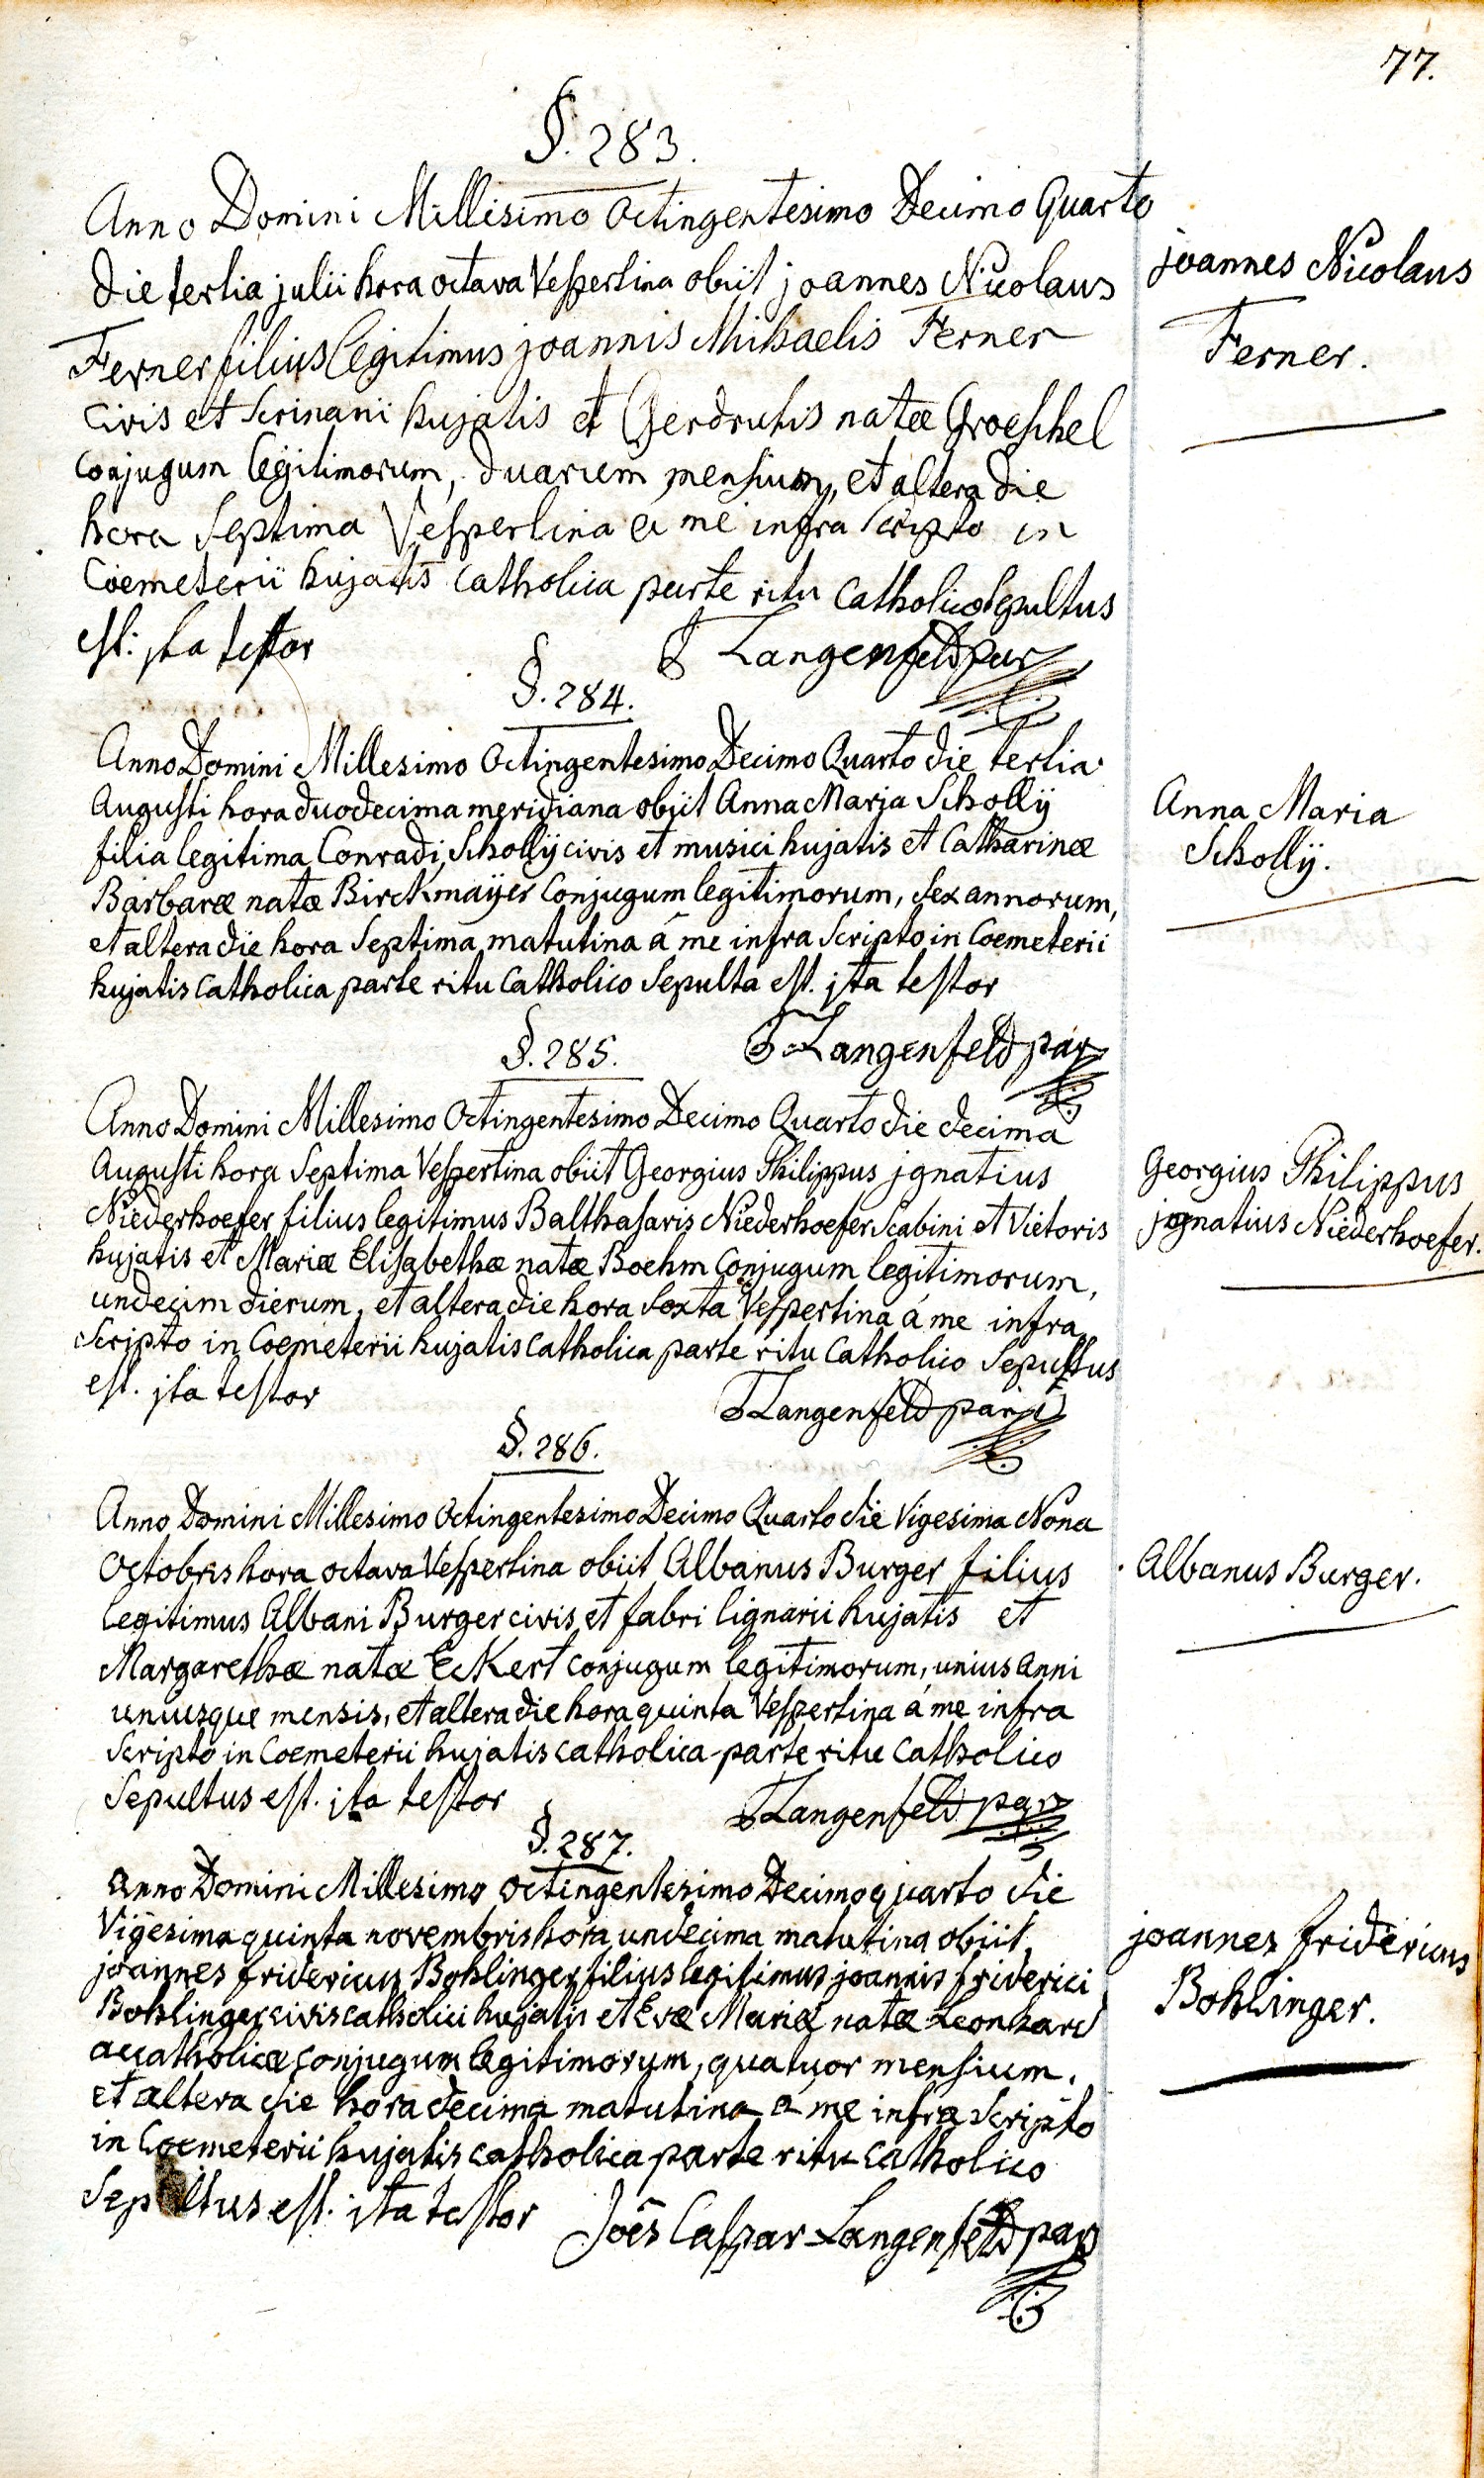 77.
§. 283.
Anno Domini Millesimo Octingentesimo Decimo Quarto
die tertia julii hora octava Vespertina obiit joannes Nicolaus
Ferner filius legitimus joannis Michaelis Ferner
civis et scrinarii hujatis et Gerdrutis natæ Groeschel
conjugum legitimorum, duarum mensium, et altera die
hora Septima Vespertina a me infra scripto in
Coemeterii hujatis catholica parte ritu Catholico sepultus
est: jta testor
Langenfeld par
joannes Nicolaus
Ferner.
§. 284.
Anno Domini Millesimo Octingentesimo Decimo Quarto die tertia
Augusti hora duodecima meridiana obiit Anna Maria Schollÿ
filia legitima Conradi Schollÿ civis et musici hujatis et Catharinæ
Barbaræ natæ Birckmaÿer conjugum legitimorum, sex annorum,
et altera die hora Septima matutina á me infra Scripto in Coemeterii
hujatis catholica parte ritu Catholico Sepulta est. jta testor
Langenfeld par
Anna Maria
Schollÿ.
§. 285.
Anno Domini Millesimo Octingentesimo Decimo Quarto die decima
Augusti hora Septima Vespertina obiit Georgius Philippus jgnatius
Niederhoefer filius legitimus Balthasaris Niederhoefer Scabini et Vietoris
hujatis et Mariæ Elisabethæ natæ Boehm Conjugum legitimorum,
undecim dierum, et altera die hora Sexta Vespertina á me infra
Scripto in Coemeterii hujatis catholica parte ritu Catholico Sepultus
est. jta testor
Langenfeld par
Georgius Philippus
jgnatius Niederhoefer.
§. 286.
Anno Domini Millesimo Octingentesimo Decimo Quarto die Vigesima Nona
Octobris hora octava Vespertina obiit Albanus Burger filius
legitimus Albani Burger civis et fabri lignarii hujatis et
Margarethæ natæ Eckert conjugum legitimorum, unius anni
uniusque mensis, et altera die hora quinta Vespertina á me infra
Scripto in Coemeterii hujatis catholica parte ritu catholico
Sepultus est. jta testor
Langenfeld par
Albanus Burger.
§. 287.
Anno Domini Millesimo octingentesimo Decimo quarto die
Vigesima quinta novembris hora undecima matutina obiit
joannes fridericus Bohlinger filius legitimus joannis friderici
Bohlinger civis catholici hujatis et Evæ Mariæ natæ Leonhard
acatholicæ conjugum legitimorum, quatuor mensium.
et altera die hora decima matutina á me infra Scripto
in Coemeterii hujatis catholica parte ritu catholico
Sepultus est. jta testor
Joês Caspar Langenfeld par
joannes fridericus
Bohlinger.